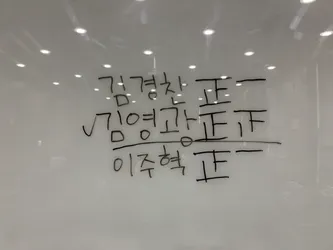 김경찬 正一
✓김영광 正正
이주혁 正一